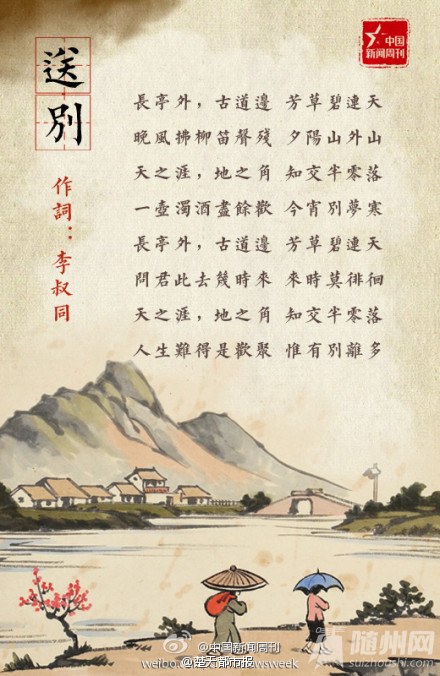 送別
作詞：李叔同
中国
新闻周刊
長亭外，古道邊 芳草碧連天
晚風拂柳笛聲殘 夕陽山外山
天之涯，地之角 知交半零落
一壺濁酒盡餘歡 今宵別夢寒
長亭外，古道邊 芳草碧連天
問君此去幾時來 來時莫徘徊
天之涯，地之角 知交半零落
人生難得是歡聚 惟有別離多
@中国新闻周刊
@楚天都市报
随州网
suizhoushi.com